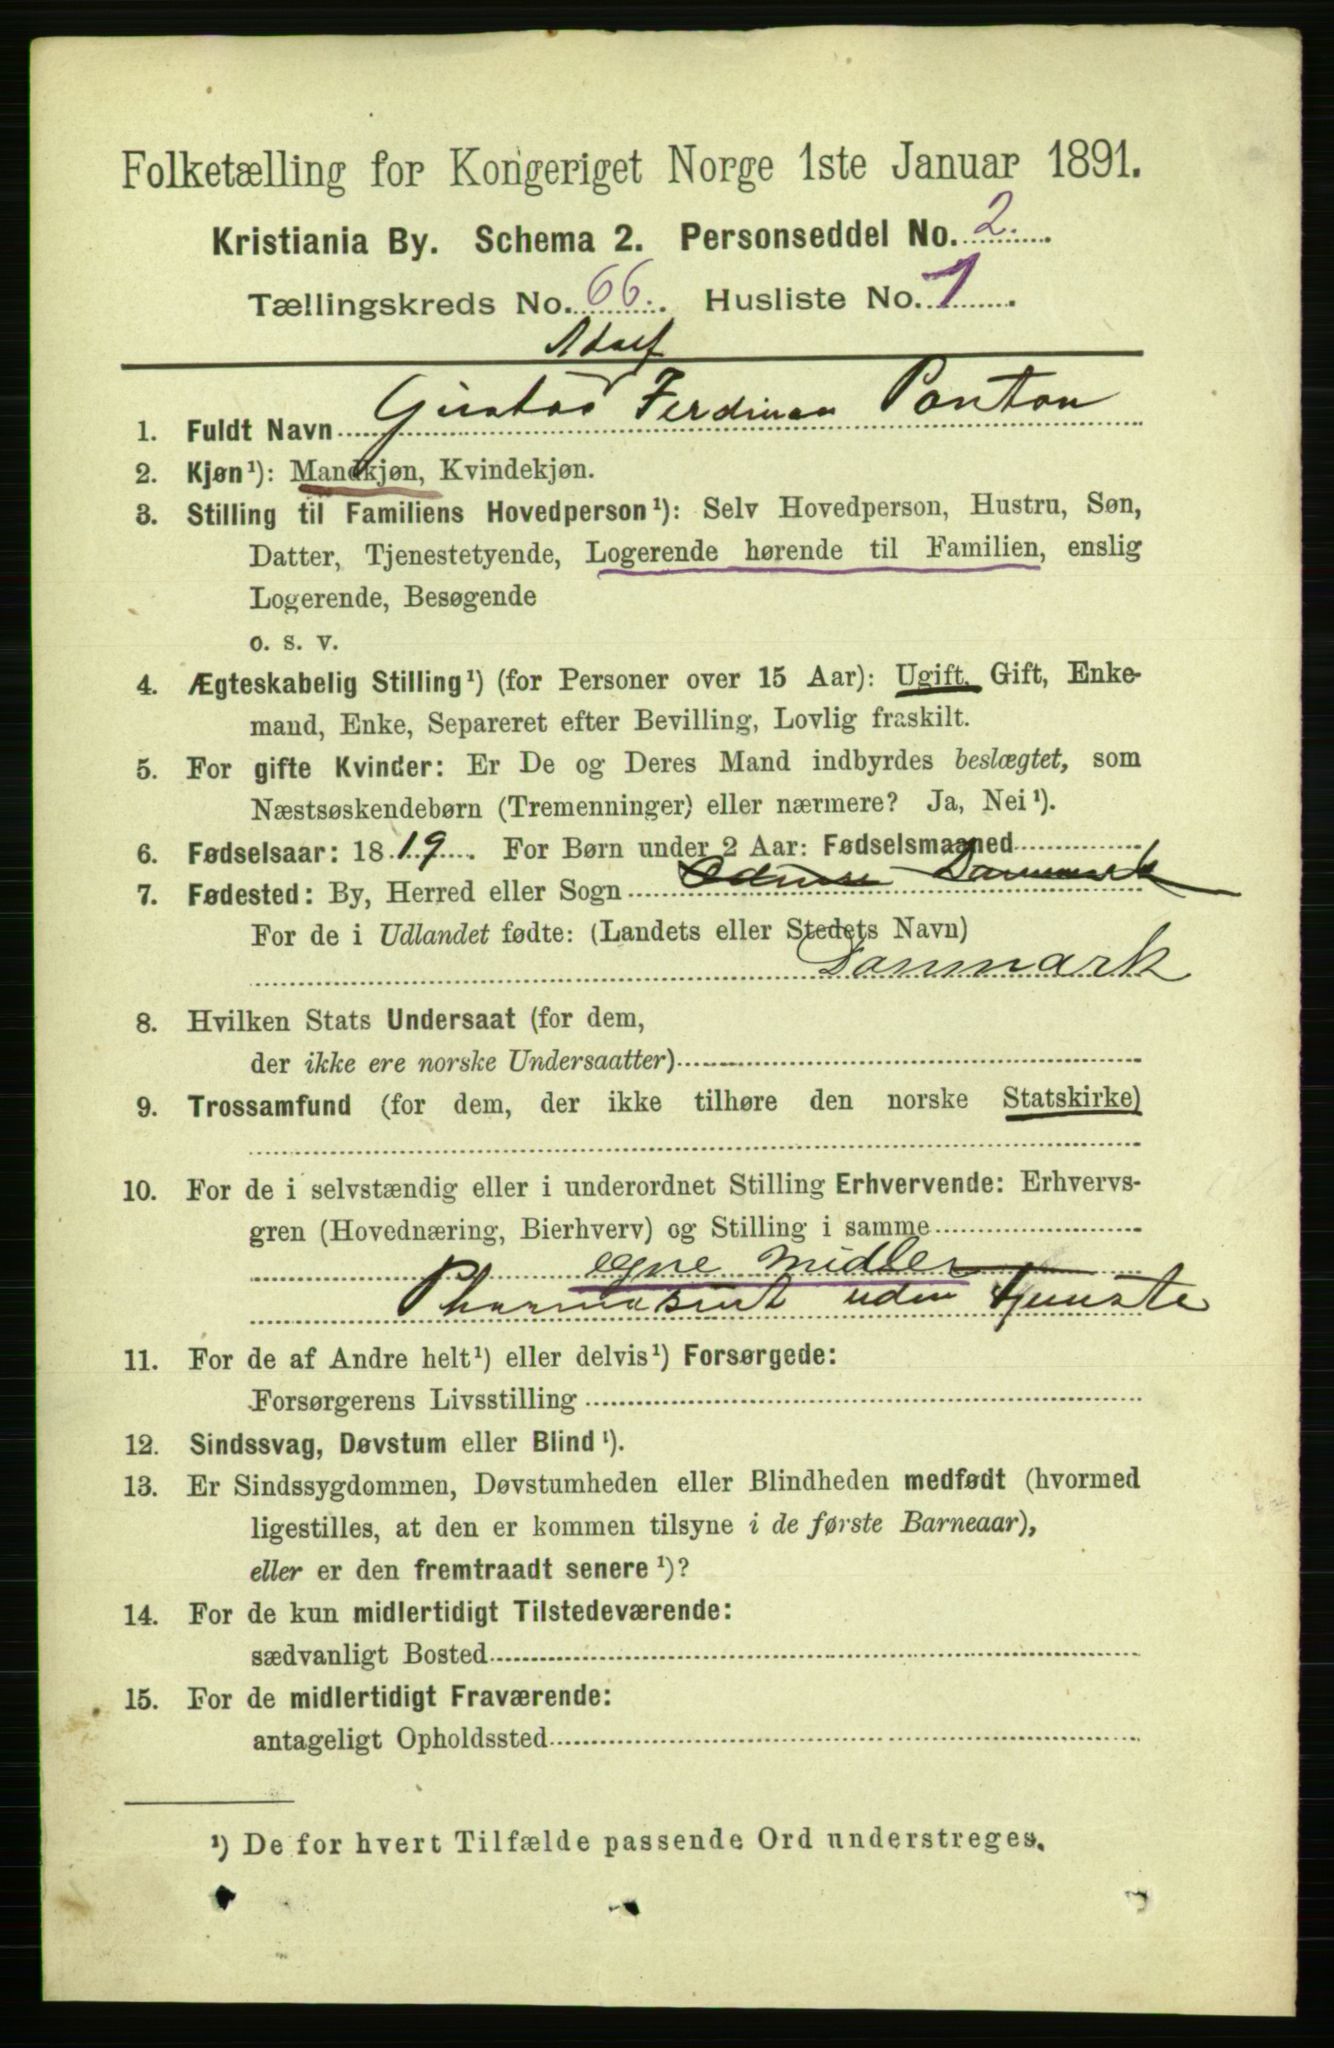 Folketælling for Kongeriget Norge 1ste Januar 1891.
Kristiania By. Schema 2. Personseddel No. 2.
Tællingskreds No. 66. Husliste No. 1
Adolf
1. Fuldt Navn Gustav Ferdinan Ponton
2. Kjøn¹): Mandkjøn, Kvindekjøn.
3. Stilling til Familiens Hovedperson¹): Selv Hovedperson, Hustru, Søn,
Datter, Tjenestetyende, Logerende hørende til Familien, enslig
Logerende, Besøgende
o. s. v.
4. Ægteskabelig Stilling¹) (for Personer over 15 Aar): Ugift, Gift, Enke-
mand, Enke, Separeret efter Bevilling, Lovlig fraskilt.
5. For gifte Kvinder: Er De og Deres Mand indbyrdes beslægtet, som
Næstsøskendebørn (Tremenninger) eller nærmere? Ja, Nei¹).
6. Fødselsaar: 1819. For Børn under 2 Aar: Fødselsmaaned
7. Fødested: By, Herred eller Sogn Odense Danmark
For de i Udlandet fødte: (Landets eller Stedets Navn)
Danmark
8. Hvilken Stats Undersaat (for dem,
der ikke ere norske Undersaatter)
9. Trossamfund (for dem, der ikke tilhøre den norske Statskirke)
10. For de i selvstændig eller i underordnet Stilling Erhvervende: Erhvervs-
gren (Hovednæring, Bierhverv) og Stilling i samme
egne midler
Pharmaseut uden tjeneste
11. For de af Andre helt¹) eller delvis¹) Forsørgede:
Forsørgerens Livsstilling
12. Sindssvag, Døvstum eller Blind¹).
13. Er Sindssygdommen, Døvstumheden eller Blindheden medfødt (hvormed
ligestilles, at den er kommen tilsyne i de første Barneaar),
eller er den fremtraadt senere¹)?
14. For de kun midlertidigt Tilstedeværende:
sædvanligt Bosted
15. For de midlertidigt Fraværende:
antageligt Opholdssted
¹) De for hvert Tilfælde passende Ord understreges.